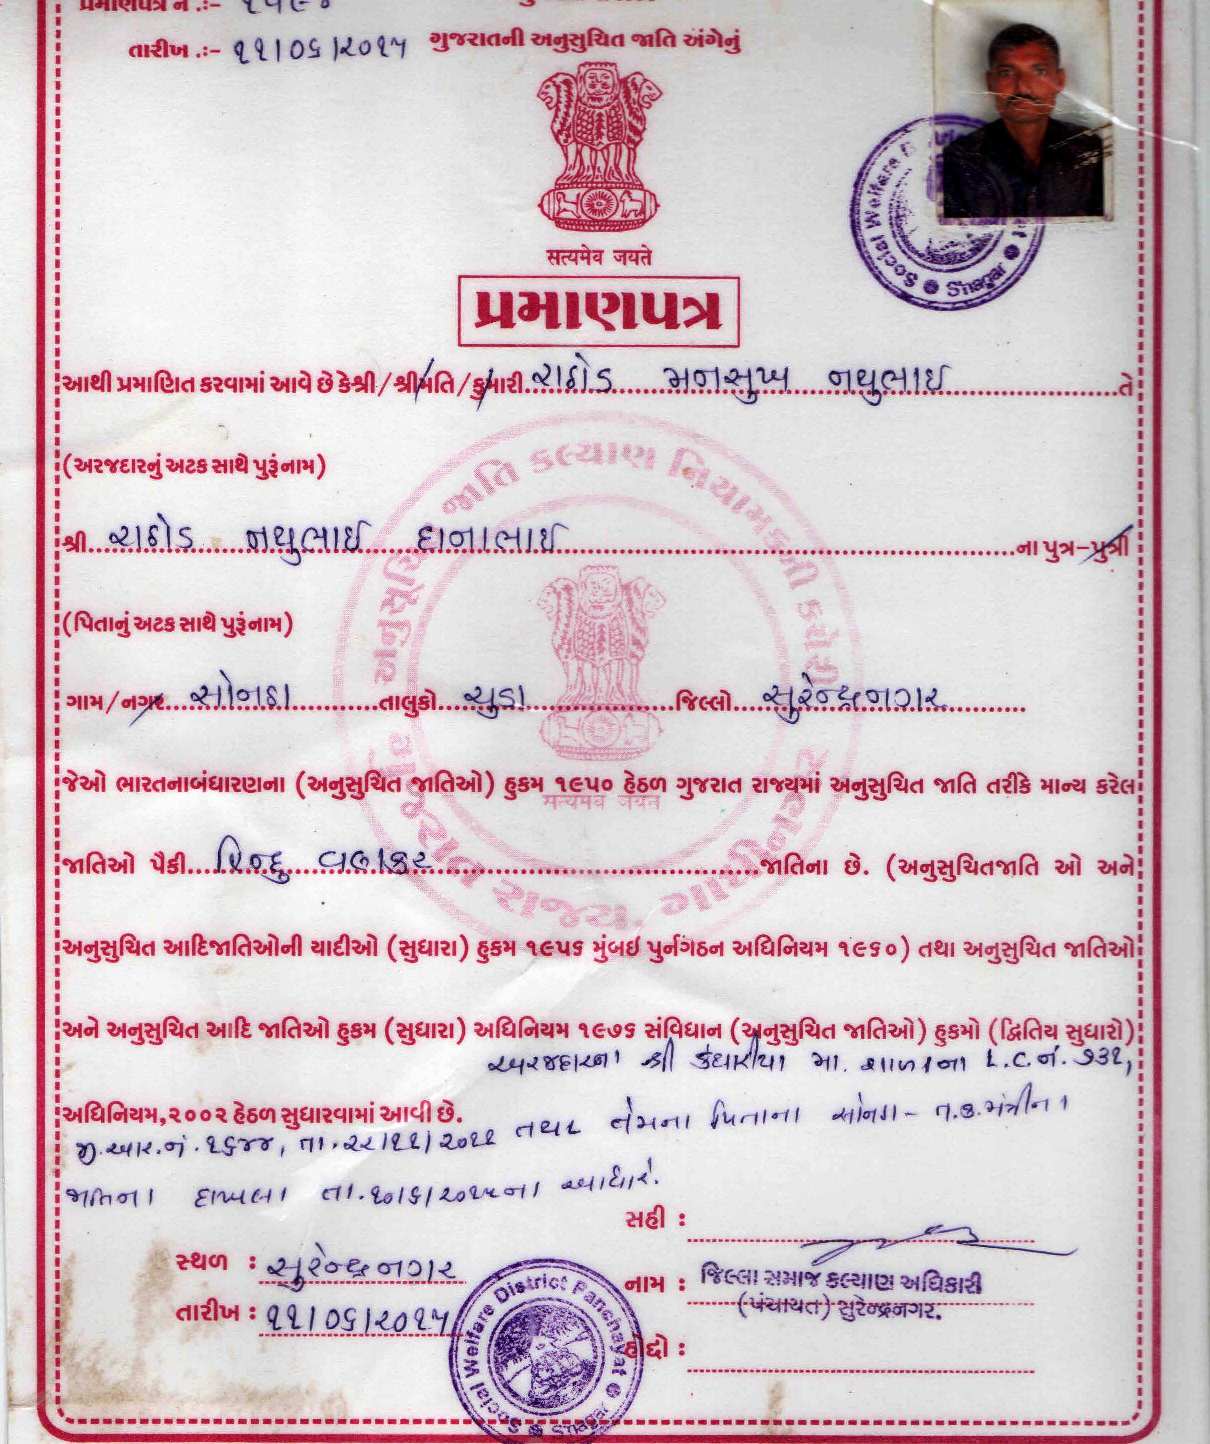 પ્રમાણપત્ર નં .:-
તારીખ .:- ૧૧/૦૬/૨૦૧૫
ગુજરાતની અનુસુચિત જાતિ અંગેનું
સત્યમેવ જયતે
પ્રમાણપત્ર
આથી પ્રમાણિત કરવામાં આવે છે કેશ્રી/શ્રીમતિ/કુમારી રાઠોડ મનસુખ નથુભાઇ તે
(અરજદારનું અટક સાથે પુરૂંનામ)
શ્રી રાઠોડ નથુભાઇ દાનાભાઇ ના પુત્ર-પુત્રી
(પિતાનું અટક સાથે પુરૂંનામ)
ગામ/નગર સોનઠા તાલુકો ચુડા જિલ્લો સુરેન્દ્રનગર
જેઓ ભારતનાબંધારણના (અનુસુચિત જાતિઓ) હુકમ ૧૯૫૦ હેઠળ ગુજરાત રાજ્યમાં અનુસુચિત જાતિ તરીકે માન્ય કરેલ
જાતિઓ પૈકી હિન્દુ વણકર જાતિના છે. (અનુસુચિતજાતિ ઓ અને
અનુસુચિત આદિજાતિઓની યાદીઓ (સુધારા) હુકમ ૧૯૫૬ મુંબઇ પુર્નગઠન અધિનિયમ ૧૯૬૦) તથા અનુસુચિત જાતિઓ
અને અનુસુચિત આદિ જાતિઓ હુકમ (સુધારા) અધિનિયમ ૧૯૭૬ સંવિધાન (અનુસુચિત જાતિઓ) હુકમો (દ્વિતિય સુધારો)
અરજદારના શ્રી કંથારીયા મા. શાળાના L.C.નં. ૭૩૨,
અધિનિયમ,૨૦૦૨ હેઠળ સુધારવામાં આવી છે.
જી.આર.નં. ૨૬૪૪, તા.૨૨/૧૧/૨૦૧૧ તથા તેમના પિતાના સોનઠા - ત.ક.મંત્રીના
જાતિના દાખલા તા.૧૦/૬/૨૦૧૫ના આધારે.
સહી :
સ્થળ : સુરેન્દ્રનગર
નામ : જિલ્લા સમાજ કલ્યાણ અધિકારી
(પંચાયત) સુરેન્દ્રનગર.
તારીખ : ૧૧/૦૬/૨૦૧૫
હોદ્દો :
Social Welfare District Panchayat S'nagar
Social Welfare S'nagar
અનુસૂચિત જાતિ કલ્યાણ નિયામકની કચેરી
ગુજરાત રાજ્ય, ગાંધીનગર
सत्यमेव जयते